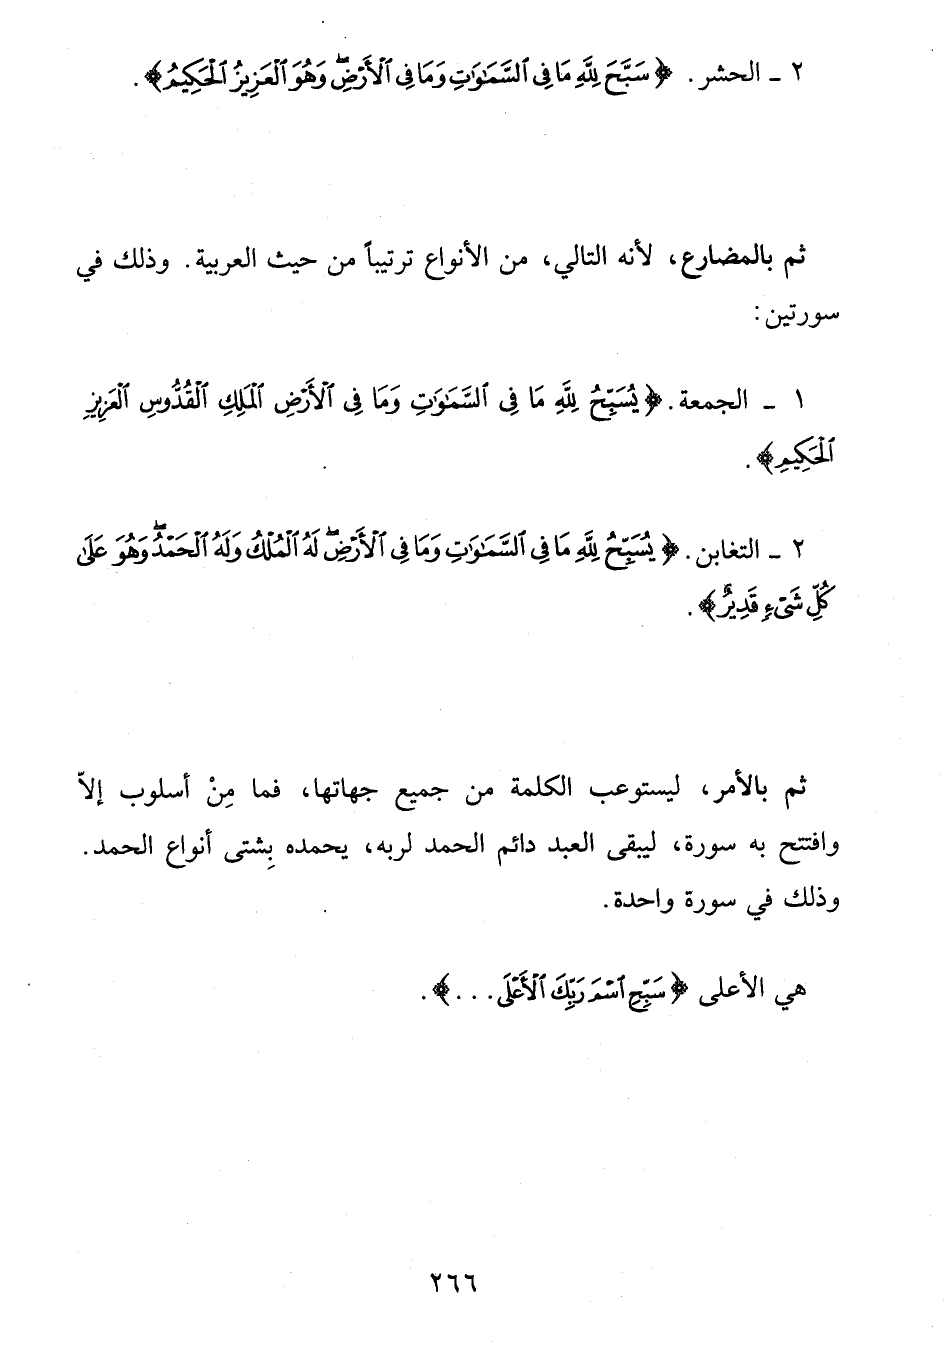 ٢ ـ الحشر. ﴿سَبَّحَ لِلَّهِ مَا فِي ٱلسَّمَٰوَٰتِ وَمَا فِي ٱلْأَرْضِۖ وَهُوَ ٱلْعَزِيزُ ٱلْحَكِيمُ﴾.
ثم بالمضارع، لأنه التالي، من الأنواع ترتيباً من حيث العربية. وذلك في
سورتين:
١ ـ الجمعة. ﴿يُسَبِّحُ لِلَّهِ مَا فِي ٱلسَّمَٰوَٰتِ وَمَا فِي ٱلْأَرْضِ ٱلْمَلِكِ ٱلْقُدُّوسِ ٱلْعَزِيزِ
ٱلْحَكِيمِ﴾.
٢ ـ التغابن. ﴿يُسَبِّحُ لِلَّهِ مَا فِي ٱلسَّمَٰوَٰتِ وَمَا فِي ٱلْأَرْضِۖ لَهُ ٱلْمُلْكُ وَلَهُ ٱلْحَمْدُۖ وَهُوَ عَلَىٰ
كُلِّ شَىْءٍ قَدِيرٌ﴾.
ثم بالأمر، ليستوعب الكلمة من جميع جهاتها، فما مِنْ أسلوب إلاّ
وافتتح به سورة، ليبقى العبد دائم الحمد لربه، يحمده بِشتى أنواع الحمد.
وذلك في سورة واحدة.
هي الأعلى ﴿سَبِّحِ ٱسْمَ رَبِّكَ ٱلْأَعْلَى...﴾.
٢٦٦